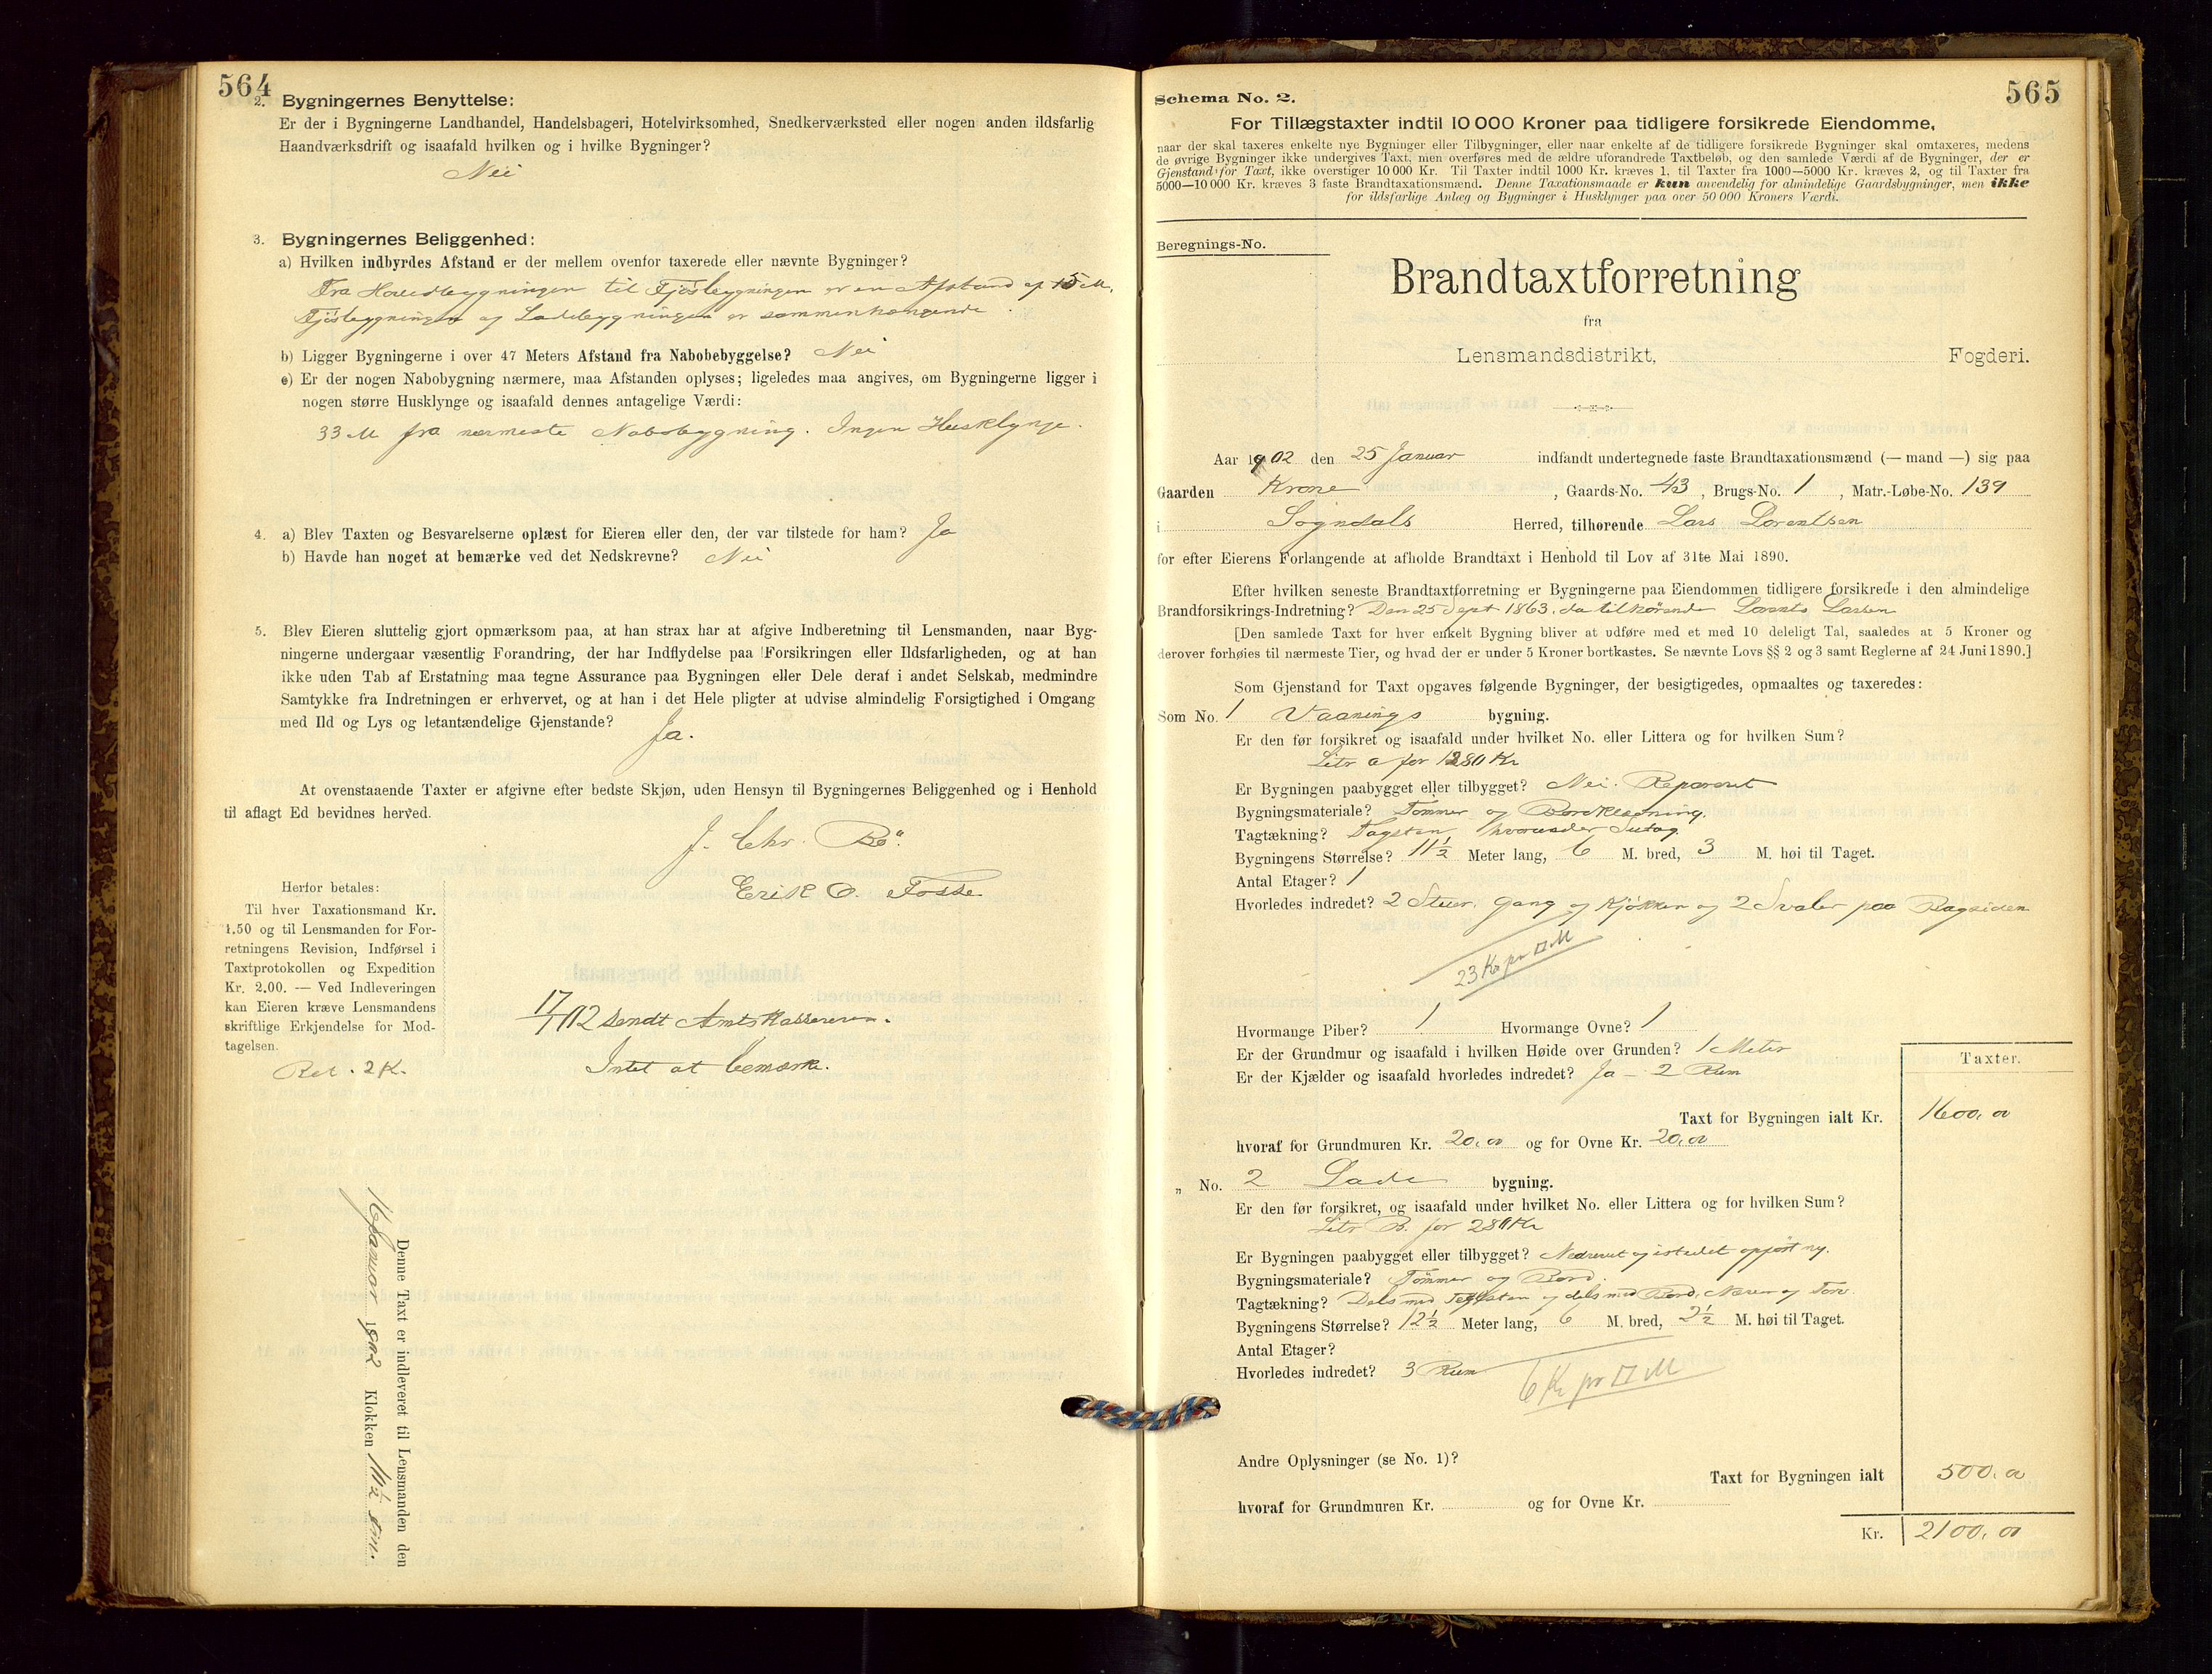 564
2. Bygningernes Benyttelse:
Er der i Bygningerne Landhandel, Handelsbageri, Hotelvirksomhed, Snedkerværksted eller nogen anden ildsfarlig
Haandværksdrift og isaafald hvilken og i hvilke Bygninger?
Nei
3. Bygningernes Beliggenhed:
a) Hvilken indbyrdes Afstand er der mellem ovenfor taxerede eller nævnte Bygninger?
Fra Hovedbygningen til Fjøsbygningen er en Afstand af 15 M.
Fjøsbygningen og Ladebygningen er sammenhængende.
b) Ligger Bygningerne i over 47 Meters Afstand fra Nabobebyggelse? Nei
c) Er der nogen Nabobygning nærmere, maa Afstanden oplyses; ligeledes maa angives, om Bygningerne ligger i
nogen større Husklynge og isaafald dennes antagelige Værdi:
33 M fra nærmeste Nabobygning. Ingen Husklynge.
4. a) Blev Taxten og Besvarelserne oplæst for Eieren eller den, der var tilstede for ham? Ja
b) Havde han noget at bemærke ved det Nedskrevne? Nei
5. Blev Eieren sluttelig gjort opmærksom paa, at han strax har at afgive Indberetning til Lensmanden, naar Byg-
ningerne undergaar væsentlig Forandring, der har Indflydelse paa Forsikringen eller Ildsfarligheden, og at han
ikke uden Tab af Erstatning maa tegne Assurance paa Bygningen eller Dele deraf i andet Selskab, medmindre
Samtykke fra Indretningen er erhvervet, og at han i det Hele pligter at udvise almindelig Forsigtighed i Omgang
med Ild og Lys og letantændelige Gjenstande?
Ja.
At ovenstaaende Taxter er afgivne efter bedste Skjøn, uden Hensyn til Bygningernes Beliggenhed og i Henhold
til aflagt Ed bevidnes herved.
J. Chr. Bö.
Erik O. Fosse
Herfor betales:
Til hver Taxationsmand Kr.
1.50 og til Lensmanden for For-
retningens Revision, Indførsel i
Taxtprotokollen og Expedition
Kr. 2.00. — Ved Indleveringen
kan Eieren kræve Lensmandens
skriftlige Erkjendelse for Mod-
tagelsen.
Bet. 2 K.
sendt Amtskassereren.
Intet at bemærke.
Denne Taxt er indleveret til Lensmanden den
Januar 1902 Klokken 11 1/2 Fm.
Schema No. 2.
565
For Tillægstaxter indtil 10 000 Kroner paa tidligere forsikrede Eiendomme,
naar der skal taxeres enkelte nye Bygninger eller Tilbygninger, eller naar enkelte af de tidligere forsikrede Bygninger skal omtaxeres, medens
de øvrige Bygninger ikke undergives Taxt, men overføres med de ældre uforandrede Taxtbeløb, og den samlede Værdi af de Bygninger, der er
Gjenstand for Taxt, ikke overstiger 10 000 Kr. Til Taxter indtil 1000 Kr. kræves 1, til Taxter fra 1000—5000 Kr. kræves 2, og til Taxter fra
5000—10 000 Kr. kræves 3 faste Brandtaxationsmænd. Denne Taxationsmaade er kun anvendelig for almindelige Gaardsbygninger, men ikke
for ildsfarlige Anlæg og Bygninger i Husklynger paa over 50 000 Kroners Værdi.
Beregnings-No.
Brandtaxtforretning
fra
Lensmandsdistrikt, Fogderi.
Aar 1902 den 25 Januar indfandt undertegnede faste Brandtaxationsmænd (— mand —) sig paa
Gaarden Krone, Gaards-No. 43, Brugs-No. 1, Matr.-Løbe-No. 139
i Sogndals Herred, tilhørende Lars Lorentsen
for efter Eierens Forlangende at afholde Brandtaxt i Henhold til Lov af 31te Mai 1890.
Efter hvilken seneste Brandtaxtforretning er Bygningerne paa Eiendommen tidligere forsikrede i den almindelige
Brandforsikrings-Indretning? Den 25 Sept 1863, da tilhørende Lorents Larsen
[Den samlede Taxt for hver enkelt Bygning bliver at udføre med et med 10 deleligt Tal, saaledes at 5 Kroner og
derover forhøies til nærmeste Tier, og hvad der er under 5 Kroner bortkastes. Se nævnte Lovs §§ 2 og 3 samt Reglerne af 24 Juni 1890.]
Som Gjenstand for Taxt opgaves følgende Bygninger, der besigtigedes, opmaaltes og taxeredes:
Som No. 1 Vaanings bygning.
Er den før forsikret og isaafald under hvilket No. eller Littera og for hvilken Sum?
Litr a for 1280 Kr
Er Bygningen paabygget eller tilbygget? Nei. Repareret
Bygningsmateriale? Tømmer og Bordklædning.
Tagtækning? Tagsten hvorunder Sutag.
Bygningens Størrelse? 11 1/2 Meter lang, 6 M. bred, 3 M. høi til Taget.
Antal Etager? 1
Hvorledes indredet? 2 Stuer, Gang og Kjøkken og 2 Svaler paa Bagsiden
23 Kr pr □ M
Hvormange Piber? 1 Hvormange Ovne? 1
Er der Grundmur og isaafald i hvilken Høide over Grunden? 1 Meter
Er der Kjælder og isaafald hvorledes indredet? Ja - 2 Rum
Taxter.
Taxt for Bygningen ialt Kr. 1600,00
hvoraf for Grundmuren Kr. 20,00 og for Ovne Kr. 20,00
" No. 2 Lade bygning.
Er den før forsikret, og isaafald under hvilket No. eller Littera og for hvilken Sum?
Litr B. for 280 Kr
Er Bygningen paabygget eller tilbygget? Nedrevet og istedet opført ny.
Bygningsmateriale? Tømmer og Bord.
Tagtækning? Dels med Tagsten og dels med Bord, Næver og Torv.
Bygningens Størrelse? 12 1/2 Meter lang, 6 M. bred, 2 1/2 M. høi til Taget.
Antal Etager?
Hvorledes indredet? 3 Rum
6 Kr pr □ M
Andre Oplysninger (se No. 1)?
Taxt for Bygningen ialt 500,00
hvoraf for Grundmuren Kr. og for Ovne Kr.
Kr. 2100,00